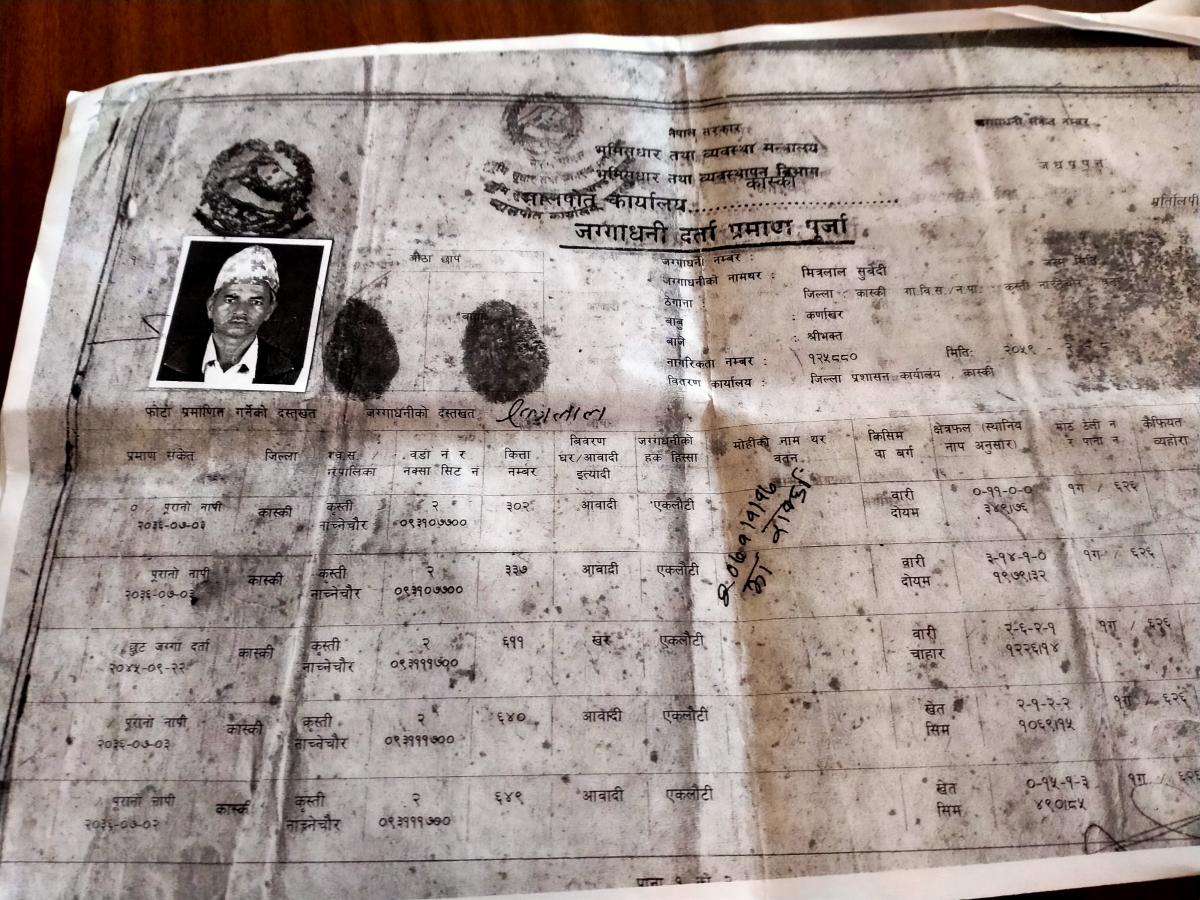 नेपाल सरकार
भूमिसुधार तथा व्यवस्था मन्त्रालय
भूमिसुधार तथा व्यवस्थापन बिभाग
कास्की
मालपोत कार्यालय
जग्गाधनी दर्ता प्रमाण पूर्जा
जग्गाधनी संकेत नम्बर
ज ध प्र पू न
औंठा छाप
जग्गाधनी नम्बर :
जग्गाधनीको नामथर : मित्रलाल सुवेदी
ठेगाना : जिल्ला : कास्की गा.वि.स./न.पा. :
बाबु : कर्णाखर
बाजे : श्रीभक्त
नागरिकता नम्बर : १२५८८० मिति: २०५९ -
वितरण कार्यालय : जिल्ला प्रशासन कार्यालय , कास्की
फोटो प्रमाणित गर्नेको दस्तखत जग्गाधनीको दस्तखत
प्रमाण संकेत जिल्ला गा.वि.स. / नगरपालिका वडा नं र नक्सा सिट नं कित्ता नम्बर बिवरण घर/आवादी इत्यादी जग्गाधनीको हक हिस्सा मोहीको नाम थर वतन किसिम वा बर्ग क्षेत्रफल (स्थानिय नाप अनुसार) मोठ ठेली न र पाना न कैफियत व्यहोरा
पूरानो नापी कास्की कृस्ती २ ३०२ आवादी एकलौटी वारी ०-११-०-० १ग / ६२६
२०३६-०७-०३ नाच्नेचौर ०९३१०७७०० दोयम ३४९।७६
पूरानो नापी कास्की कृस्ती २ ३३७ आवादी एकलौटी वारी ३-१४-१-० १ग / ६२६
२०३६-०७-०३ नाच्नेचौर ०९३१०७७०० दोयम १९७९।३२
छुट जग्गा दर्ता कास्की कृस्ती २ ६११ खर एकलौटी वारी २-६-२-१ १ग / ६२६
२०४५-०९-२२ नाच्नेचौर ०९३१११७०० चाहार १२२६।१४
पूरानो नापी कास्की कृस्ती २ ६४० आवादी एकलौटी खेत २-१-२-२ १ग / ६२६
२०३६-०७-०३ नाच्नेचौर ०९३१११७०० सिम १०६९।१५
पूरानो नापी कास्की कृस्ती २ ६४९ आवादी एकलौटी खेत ०-१५-१-३ १ग / ६२६
नाच्नेचौर ०९३१११७०० सिम ४९०।८५
पाना १ को २